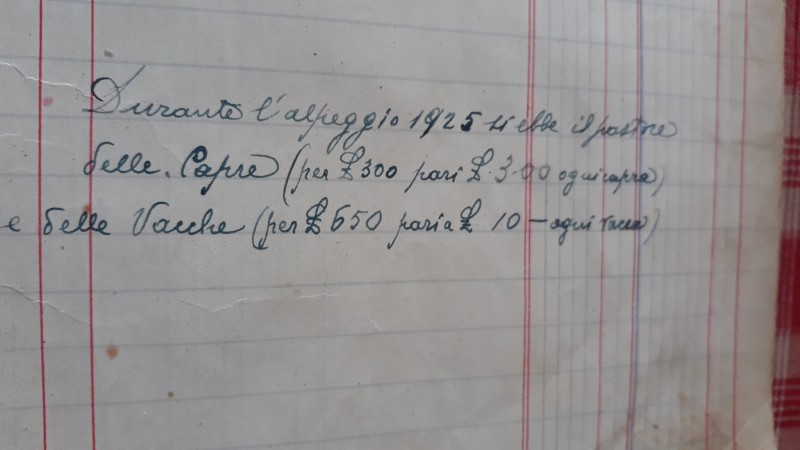 Durante l'alpeggio 1925 si ebbe il pastore
delle Capre (per £ 300 pari £. 3.00 ogni capra)
e delle Vacche (per £ 650 pari a £ 10 - ogni vacca)